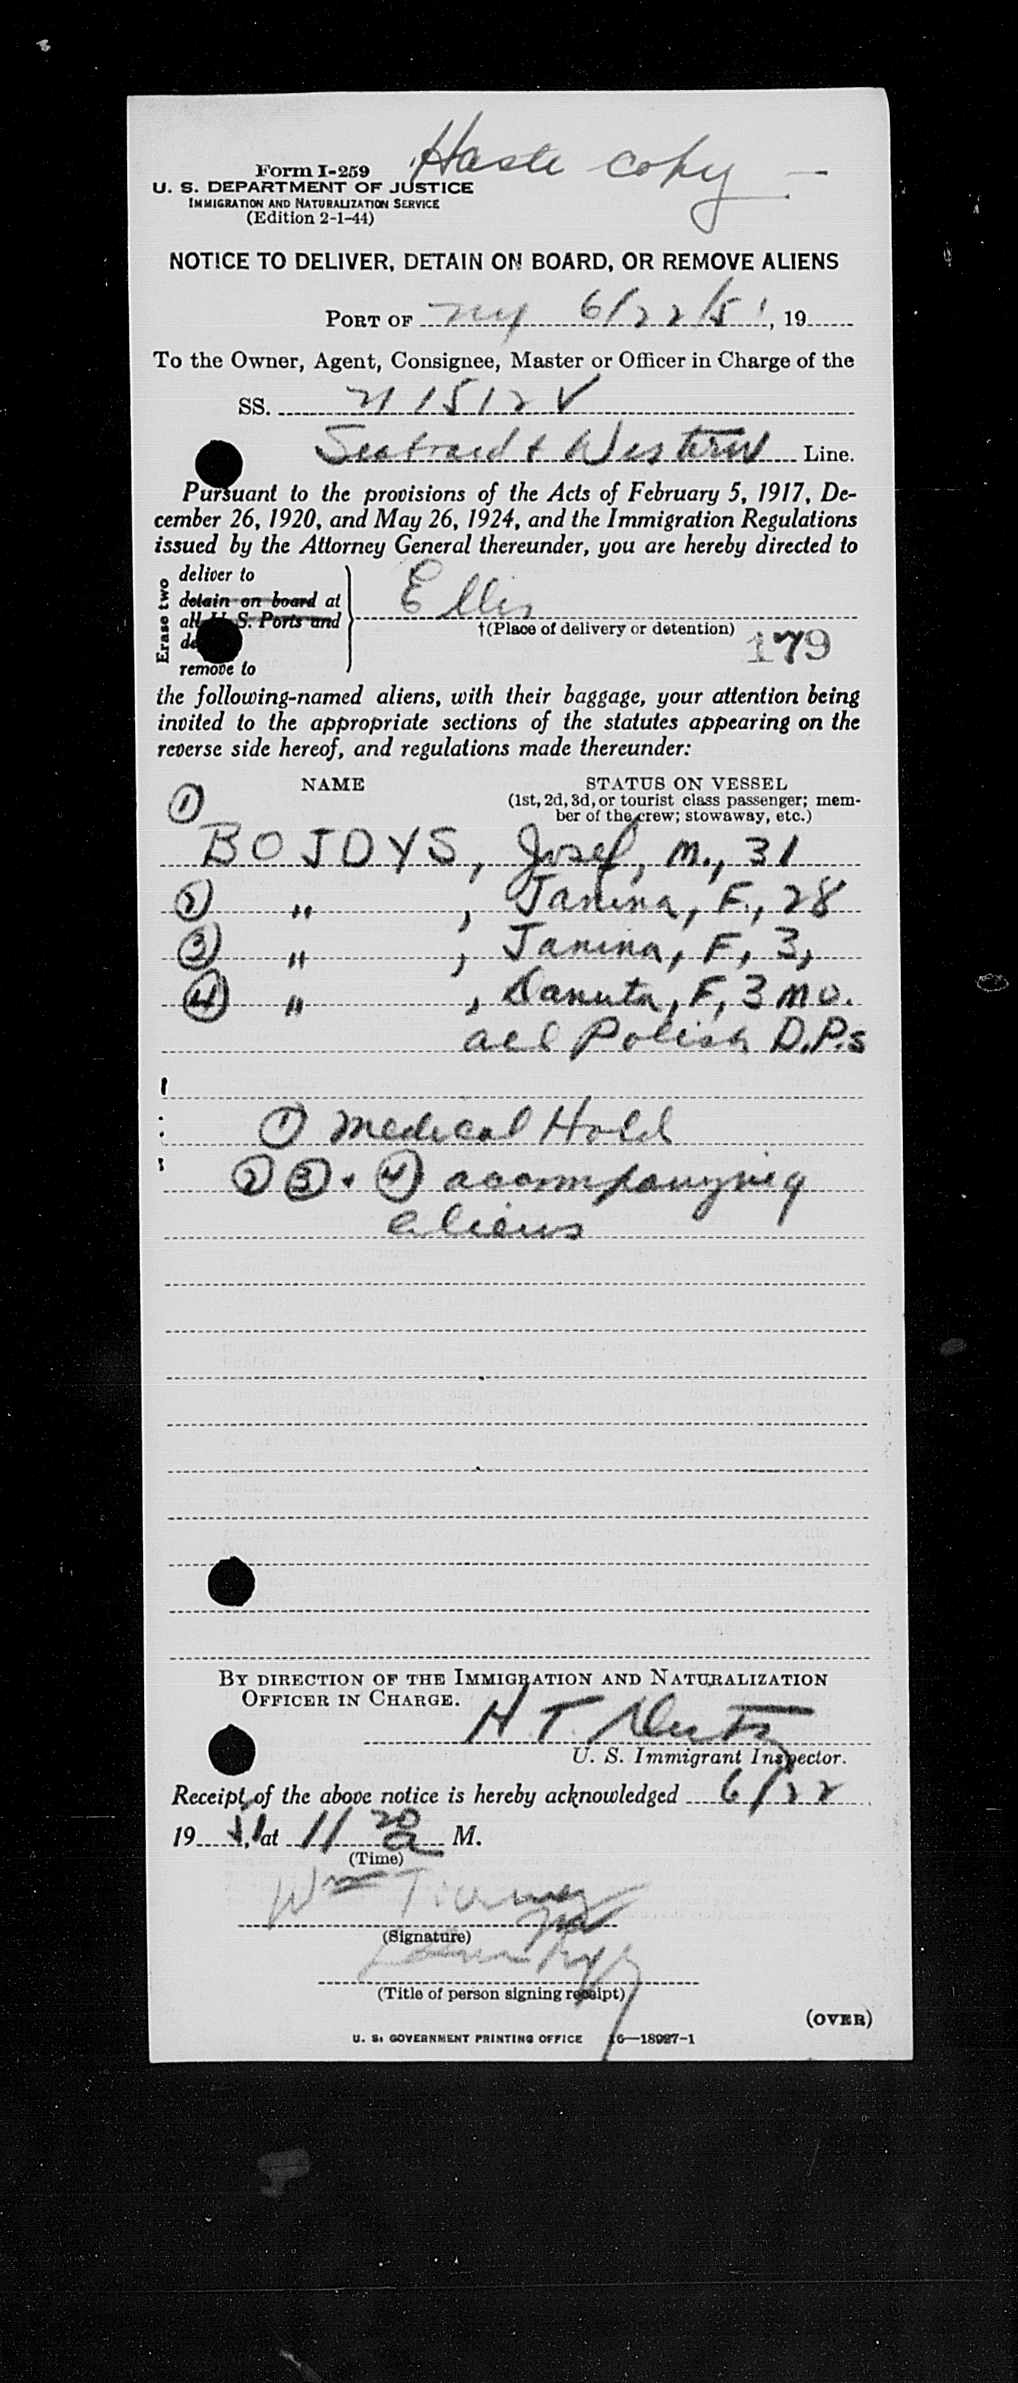 Haste copy —
Form I-259
U. S. DEPARTMENT OF JUSTICE
IMMIGRATION AND NATURALIZATION SERVICE
(Edition 2-1-44)
NOTICE TO DELIVER, DETAIN ON BOARD, OR REMOVE ALIENS
PORT OF NY 6/22/51, 19
To the Owner, Agent, Consignee, Master or Officer in Charge of the
SS. N 1512 V
Seaboard & Western Line.
Pursuant to the provisions of the Acts of February 5, 1917, De-
cember 26, 1920, and May 26, 1924, and the Immigration Regulations
issued by the Attorney General thereunder, you are hereby directed to
Erase two
deliver to
detain on board at
all U. S. Ports and
remove to
Ellis
†(Place of delivery or detention)
179
the following-named aliens, with their baggage, your attention being
invited to the appropriate sections of the statutes appearing on the
reverse side hereof, and regulations made thereunder:
NAME STATUS ON VESSEL
(1st, 2d, 3d, or tourist class passenger; mem-
ber of the crew; stowaway, etc.)
① BOJDYS, Josef, M., 31
② " , Janina, F., 28
③ " , Janina, F, 3,
④ " , Danuta, F, 3 mo.
all Polish D.P.s
① Medical Hold
② ③ + ④ accompanying
aliens
BY DIRECTION OF THE IMMIGRATION AND NATURALIZATION
OFFICER IN CHARGE.
H. T.
U. S. Immigrant Inspector.
Receipt of the above notice is hereby acknowledged 6/22
1951, at 11 20 a M.
(Time)
Wm Tierney
(Signature)
(Title of person signing receipt)
(OVER)
U. S. GOVERNMENT PRINTING OFFICE 16—18927-1